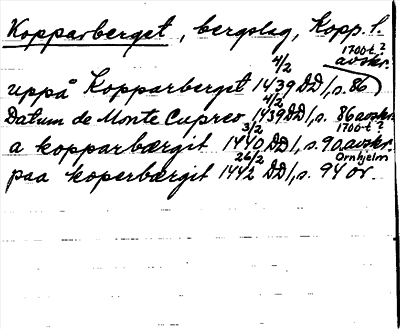 Kopparberget, bergslag, Kopp. l.
1700-t? avskr.
uppå Kopparberget 4/2 1439 DD 1, s. 86
Datum de Monte Cupreo 4/2 1439 DD 1, s. 86 avskr. 1700-t?
a kopparbærgit 3/2 1440 DD 1, s. 90 avskr. Örnhjelm
paa koperbærgit 26/2 1442 DD 1, s. 94 or.